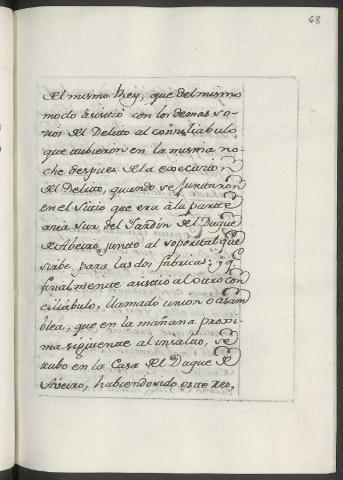 68
del mismo Rey, que del mismo
modo asistio con los demas so-
cios del Delito al conciliabulo
que tubieron en la misma no-
che despues de la execucion
del Delito, quando se juntaron
en el Sitio que era à la parte
acia sur del Jardin del Duque
de Abeiro junto al soportal que
sirbe para las dos fabricas: y q.e
finalmente asistio al otro con
ciliábulo, llamado union o asam
blea, que en la mañana proxi-
ma siguiente al insulto, se
tubo en la Casa del Duque de
Aveiro, habiendo sido este reo,